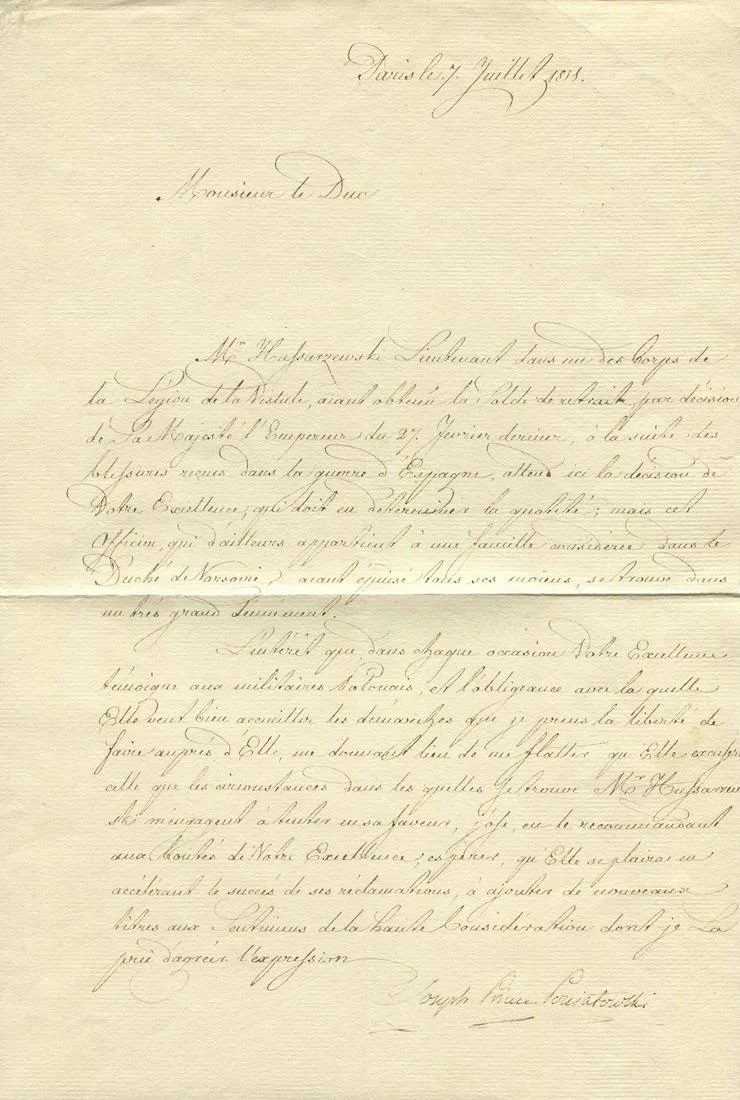 Paris le 7. Juillet 1811.
Monsieur le Duc
Mr Hussarzewski Lieutenant dans un des Corps de
la Légion de la Vistule, aiant obtenû la Solde de retrait par décision
de Sa Majesté l'Empereur du 27. Fevrier dernier, à la suite des
blessures reçues dans la guerre d'Espagne, attend ici la décision de
Votre Excellence, qui doit en déterminer la quotité; mais cet
Officier, qui d'ailleurs appartient à une famille considérée dans le
Duché de Varsovie, aiant épuisé tous ses moiens, se trouve dans
un très grand dénûment.
L'intérêt que dans chaque occasion Votre Excellence
témoigne aux militaires Polonais, et l'obligeance avec la quelle
Elle veut bien accueillir les démarches que je prens la liberté de
faire auprès d'Elle, me donnant lieu de me flatter qu'Elle excusera
celle que les circonstances dans les quelles se trouve Mr Hussarzew
ski m'engagent à tenter en sa faveur, j'ose, en le recommandant
aux bontés de Votre Excellence, espérer, qu'Elle se plaira en
accélérant le succès de ses réclamations, à ajouter de nouveaux
titres aux Sentimens de la haute Considération dont je La
prie d'agréer l'expression
Joseph Prince Poniatowski